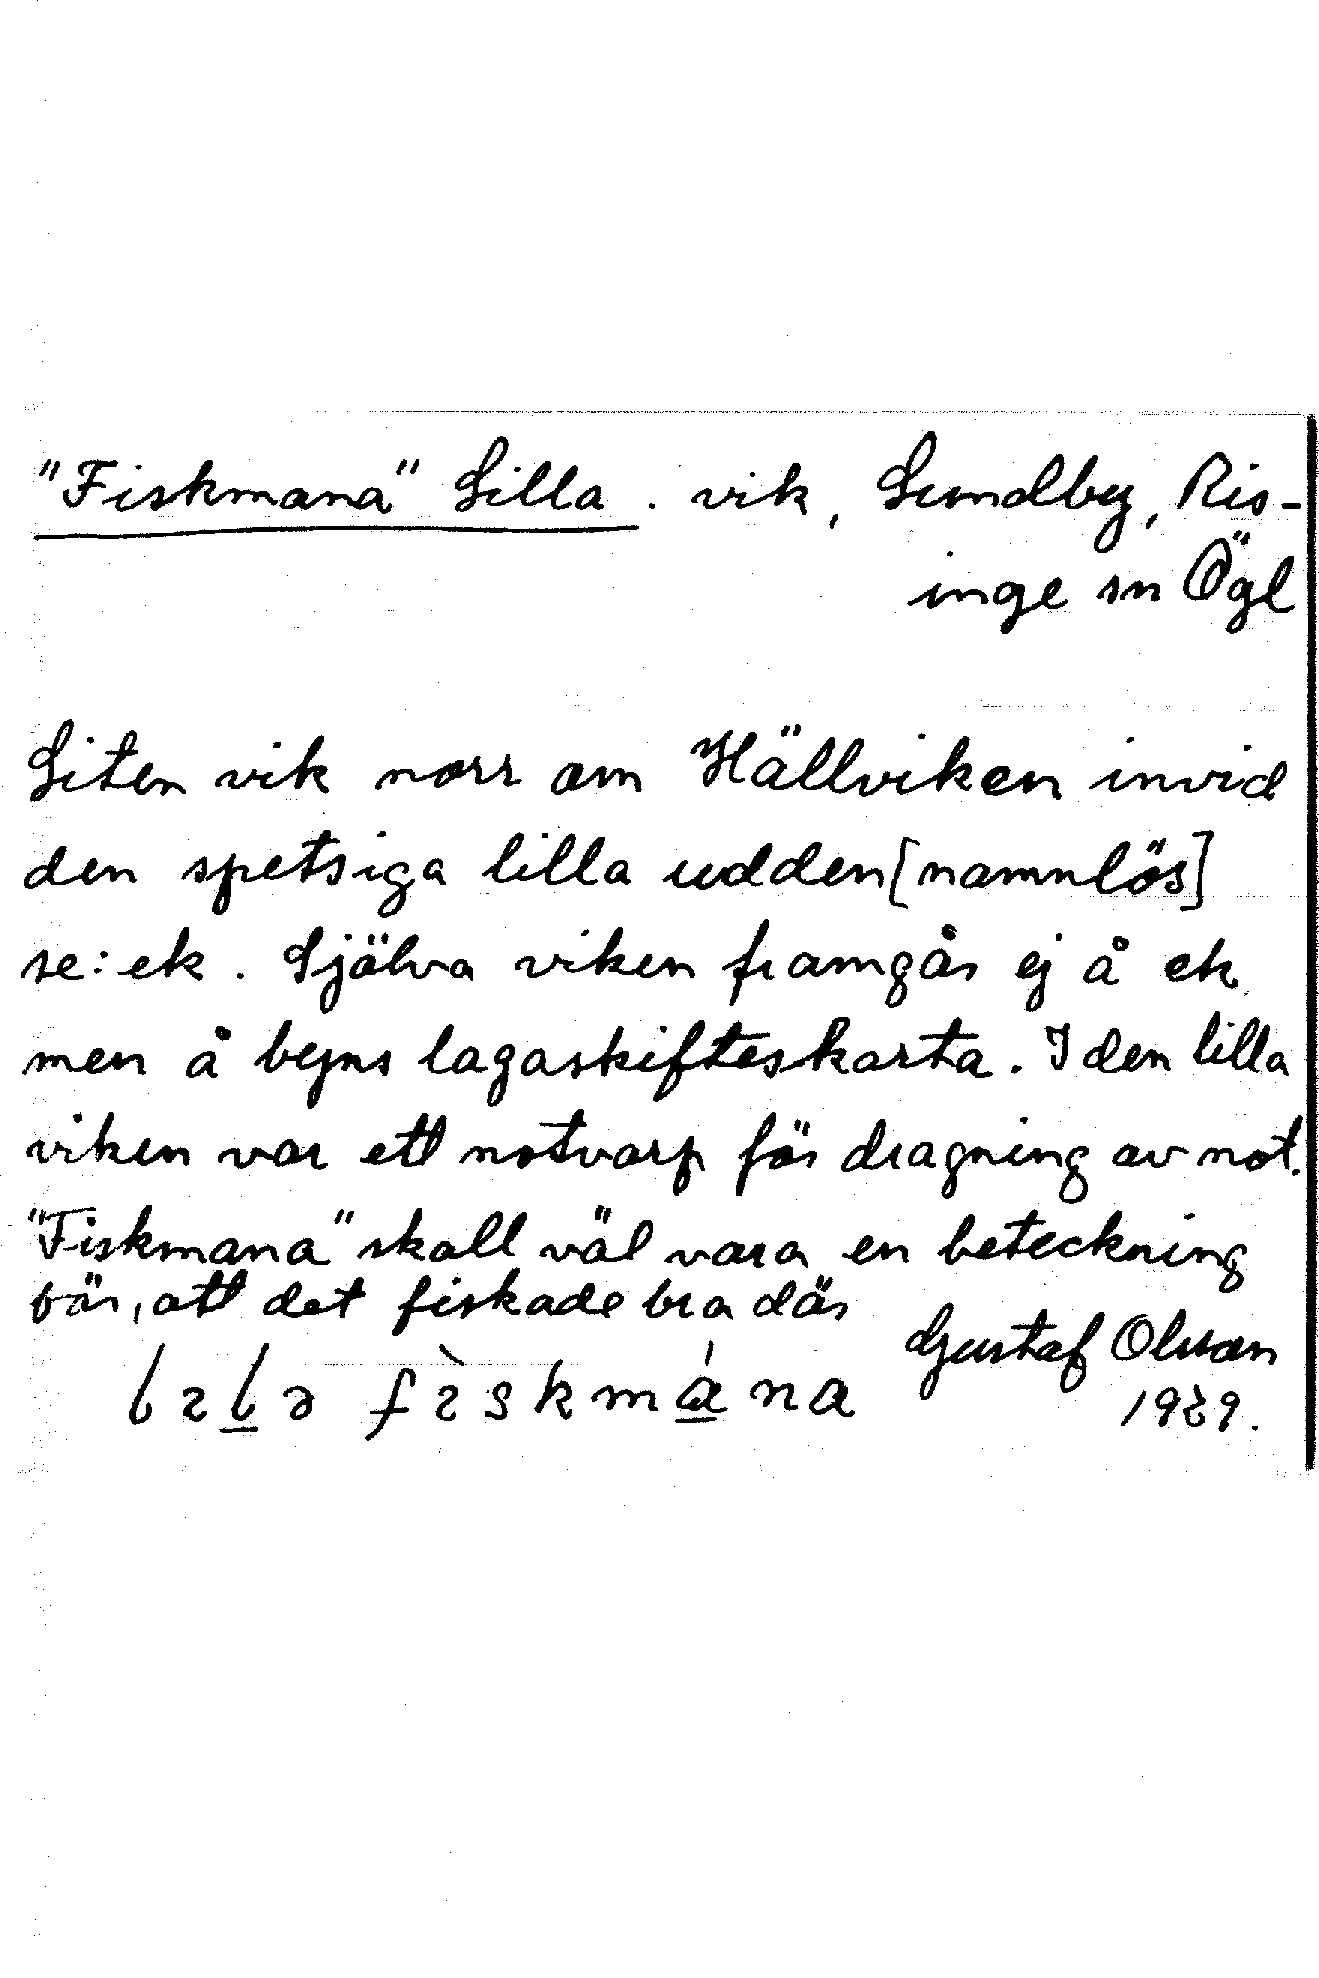 "Fiskmana" Lilla . vik, Sundby, Ris-
inge sn Ögl
Liten vik norr om Hällviken invid
den spetsiga lilla udden [namnlös]
se: ek . Själva viken framgår ej å ek
men å byns lagaskifteskarta. I den lilla
viken var ett notvarp för dragning av not.
"Fiskmana" skall väl vara en beteckning
för, att det fiskade bra där
Gustaf Olsson